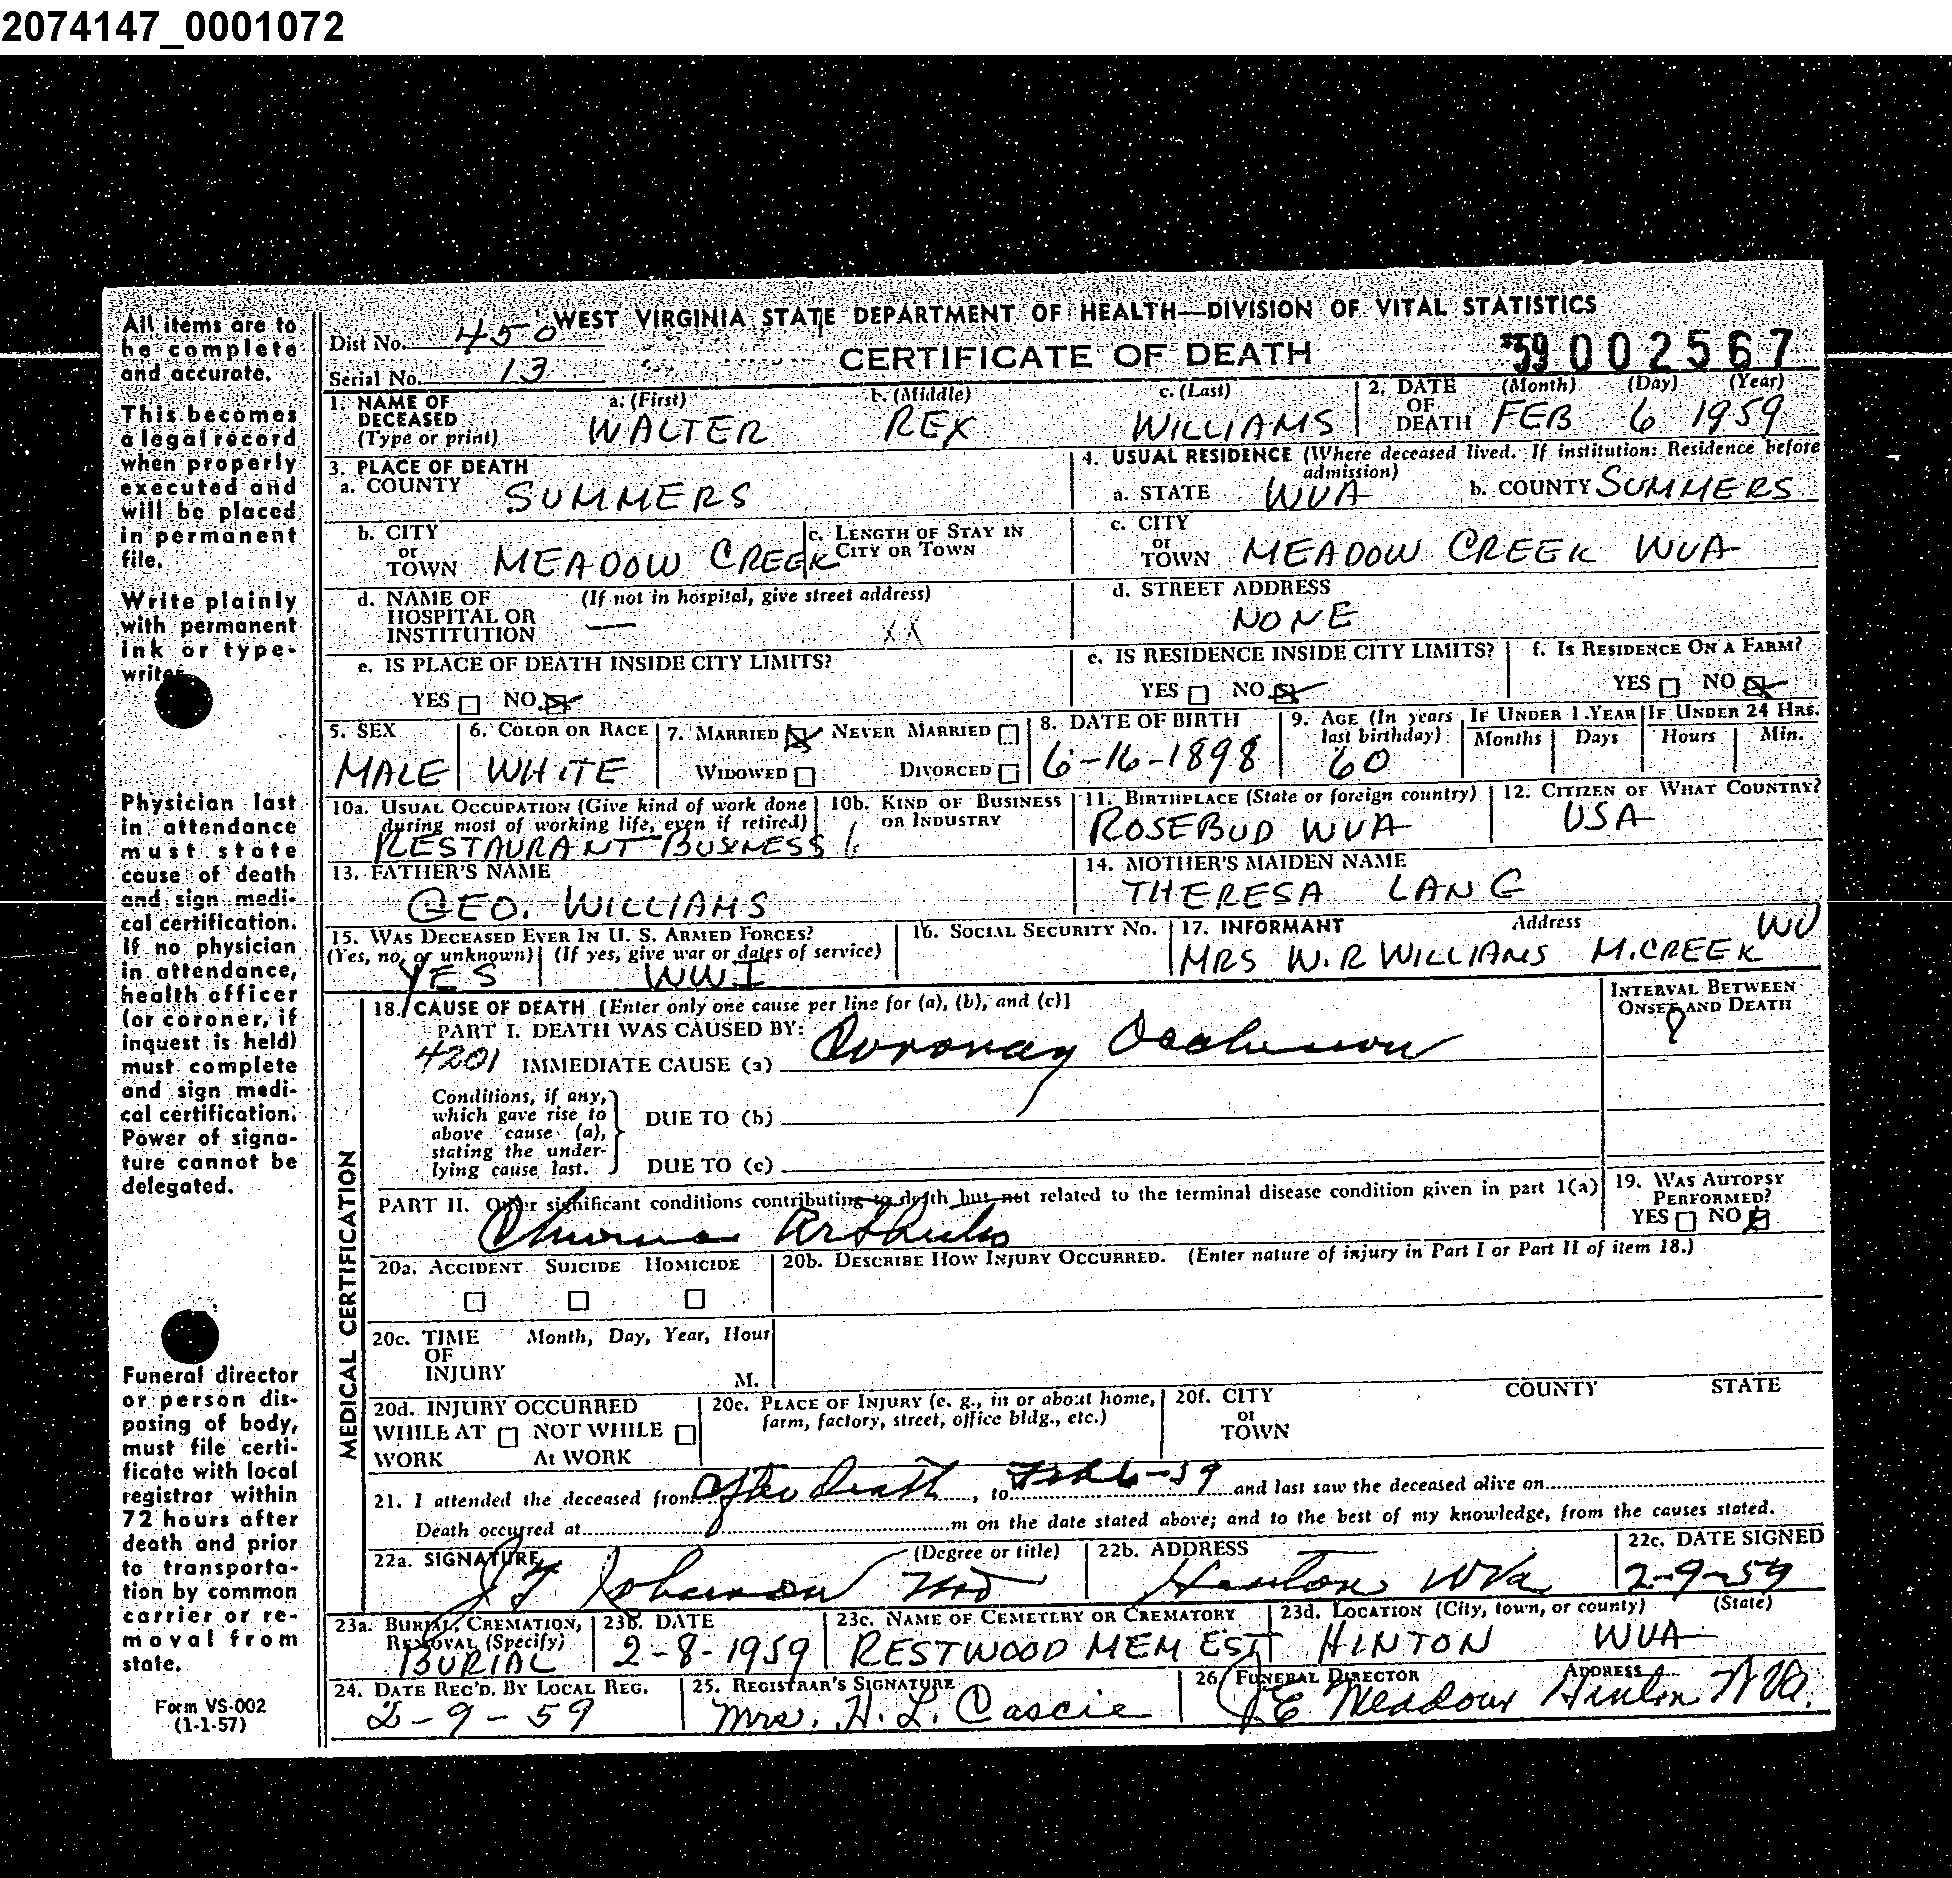 2074147_0001072
All items are to
be complete
and accurate.
This becomes
a legal record
when properly
executed and
will be placed
in permanent
file.
Write plainly
with permanent
ink or type-
writer
Physician last
in attendance
must state
cause of death
and sign medi-
cal certification.
If no physician
in attendance,
health officer
(or coroner, if
inquest is held)
must complete
and sign medi-
cal certification.
Power of signa-
ture cannot be
delegated.
Funeral director
or person dis-
posing of body,
must file certi-
ficate with local
registrar within
72 hours after
death and prior
to transporta-
tion by common
carrier or re-
moval from
state.
Form VS-002
(1-1-57)
WEST VIRGINIA STATE DEPARTMENT OF HEALTH—DIVISION OF VITAL STATISTICS
Dist No. 450
CERTIFICATE OF DEATH
59 002567
Serial No. 13
1. NAME OF DECEASED (Type or print) a. (First) WALTER b. (Middle) REX c. (Last) WILLIAMS
2. DATE OF DEATH (Month) (Day) (Year) FEB 6 1959
3. PLACE OF DEATH
a. COUNTY SUMMERS
4. USUAL RESIDENCE (Where deceased lived. If institution: Residence before admission)
a. STATE WVA b. COUNTY SUMMERS
b. CITY or TOWN MEADOW CREEK
c. LENGTH OF STAY IN CITY OR TOWN
c. CITY or TOWN MEADOW CREEK WVA
d. NAME OF HOSPITAL OR INSTITUTION (If not in hospital, give street address) — XX
d. STREET ADDRESS NONE
e. IS PLACE OF DEATH INSIDE CITY LIMITS?
YES NO
e. IS RESIDENCE INSIDE CITY LIMITS?
YES NO
f. IS RESIDENCE ON A FARM?
YES NO
5. SEX MALE
6. COLOR OR RACE WHITE
7. MARRIED NEVER MARRIED
WIDOWED DIVORCED
8. DATE OF BIRTH 6-16-1898
9. AGE (In years last birthday) 60
IF UNDER 1 YEAR Months Days
IF UNDER 24 HRS. Hours Min.
10a. USUAL OCCUPATION (Give kind of work done during most of working life, even if retired)
RESTAURANT BUSNESS
10b. KIND OF BUSINESS OR INDUSTRY
11. BIRTHPLACE (State or foreign country) ROSEBUD WVA
12. CITIZEN OF WHAT COUNTRY? USA
13. FATHER'S NAME GEO. WILLIAMS
14. MOTHER'S MAIDEN NAME THERESA LANG
15. WAS DECEASED EVER IN U. S. ARMED FORCES?
(Yes, no, or unknown) (If yes, give war or dates of service)
YES WWI
16. SOCIAL SECURITY NO.
17. INFORMANT Address
MRS W.R WILLIAMS M.CREEK WV
MEDICAL CERTIFICATION
18. CAUSE OF DEATH [Enter only one cause per line for (a), (b), and (c)]
INTERVAL BETWEEN ONSET AND DEATH
?
PART I. DEATH WAS CAUSED BY:
4201 IMMEDIATE CAUSE (a) Coronary Occlusion
Conditions, if any, which gave rise to above cause (a), stating the underlying cause last.
DUE TO (b)
DUE TO (c)
PART II. Other significant conditions contributing to death but not related to the terminal disease condition given in part 1(a)
Chronic Arthritis
19. WAS AUTOPSY PERFORMED?
YES NO
20a. ACCIDENT SUICIDE HOMICIDE
20b. DESCRIBE HOW INJURY OCCURRED. (Enter nature of injury in Part I or Part II of item 18.)
20c. TIME OF INJURY Month, Day, Year, Hour
M.
20d. INJURY OCCURRED
WHILE AT WORK NOT WHILE At WORK
20e. PLACE OF INJURY (e. g., in or about home, farm, factory, street, office bldg., etc.)
20f. CITY or TOWN COUNTY STATE
21. I attended the deceased from After Death, to Feb 6-59 and last saw the deceased alive on
Death occurred at m on the date stated above; and to the best of my knowledge, from the causes stated.
22a. SIGNATURE (Degree or title)
MD
22b. ADDRESS Hinton WVa
22c. DATE SIGNED 2-9-59
23a. BURIAL, CREMATION, REMOVAL (Specify) BURIAL
23b. DATE 2-8-1959
23c. NAME OF CEMETERY OR CREMATORY RESTWOOD MEM EST
23d. LOCATION (City, town, or county) (State) HINTON WVA
24. DATE REC'D. BY LOCAL REG. 2-9-59
25. REGISTRAR'S SIGNATURE Mrs. H. L. Cascie
26. FUNERAL DIRECTOR ADDRESS
JE Meadows Hinton W Va.